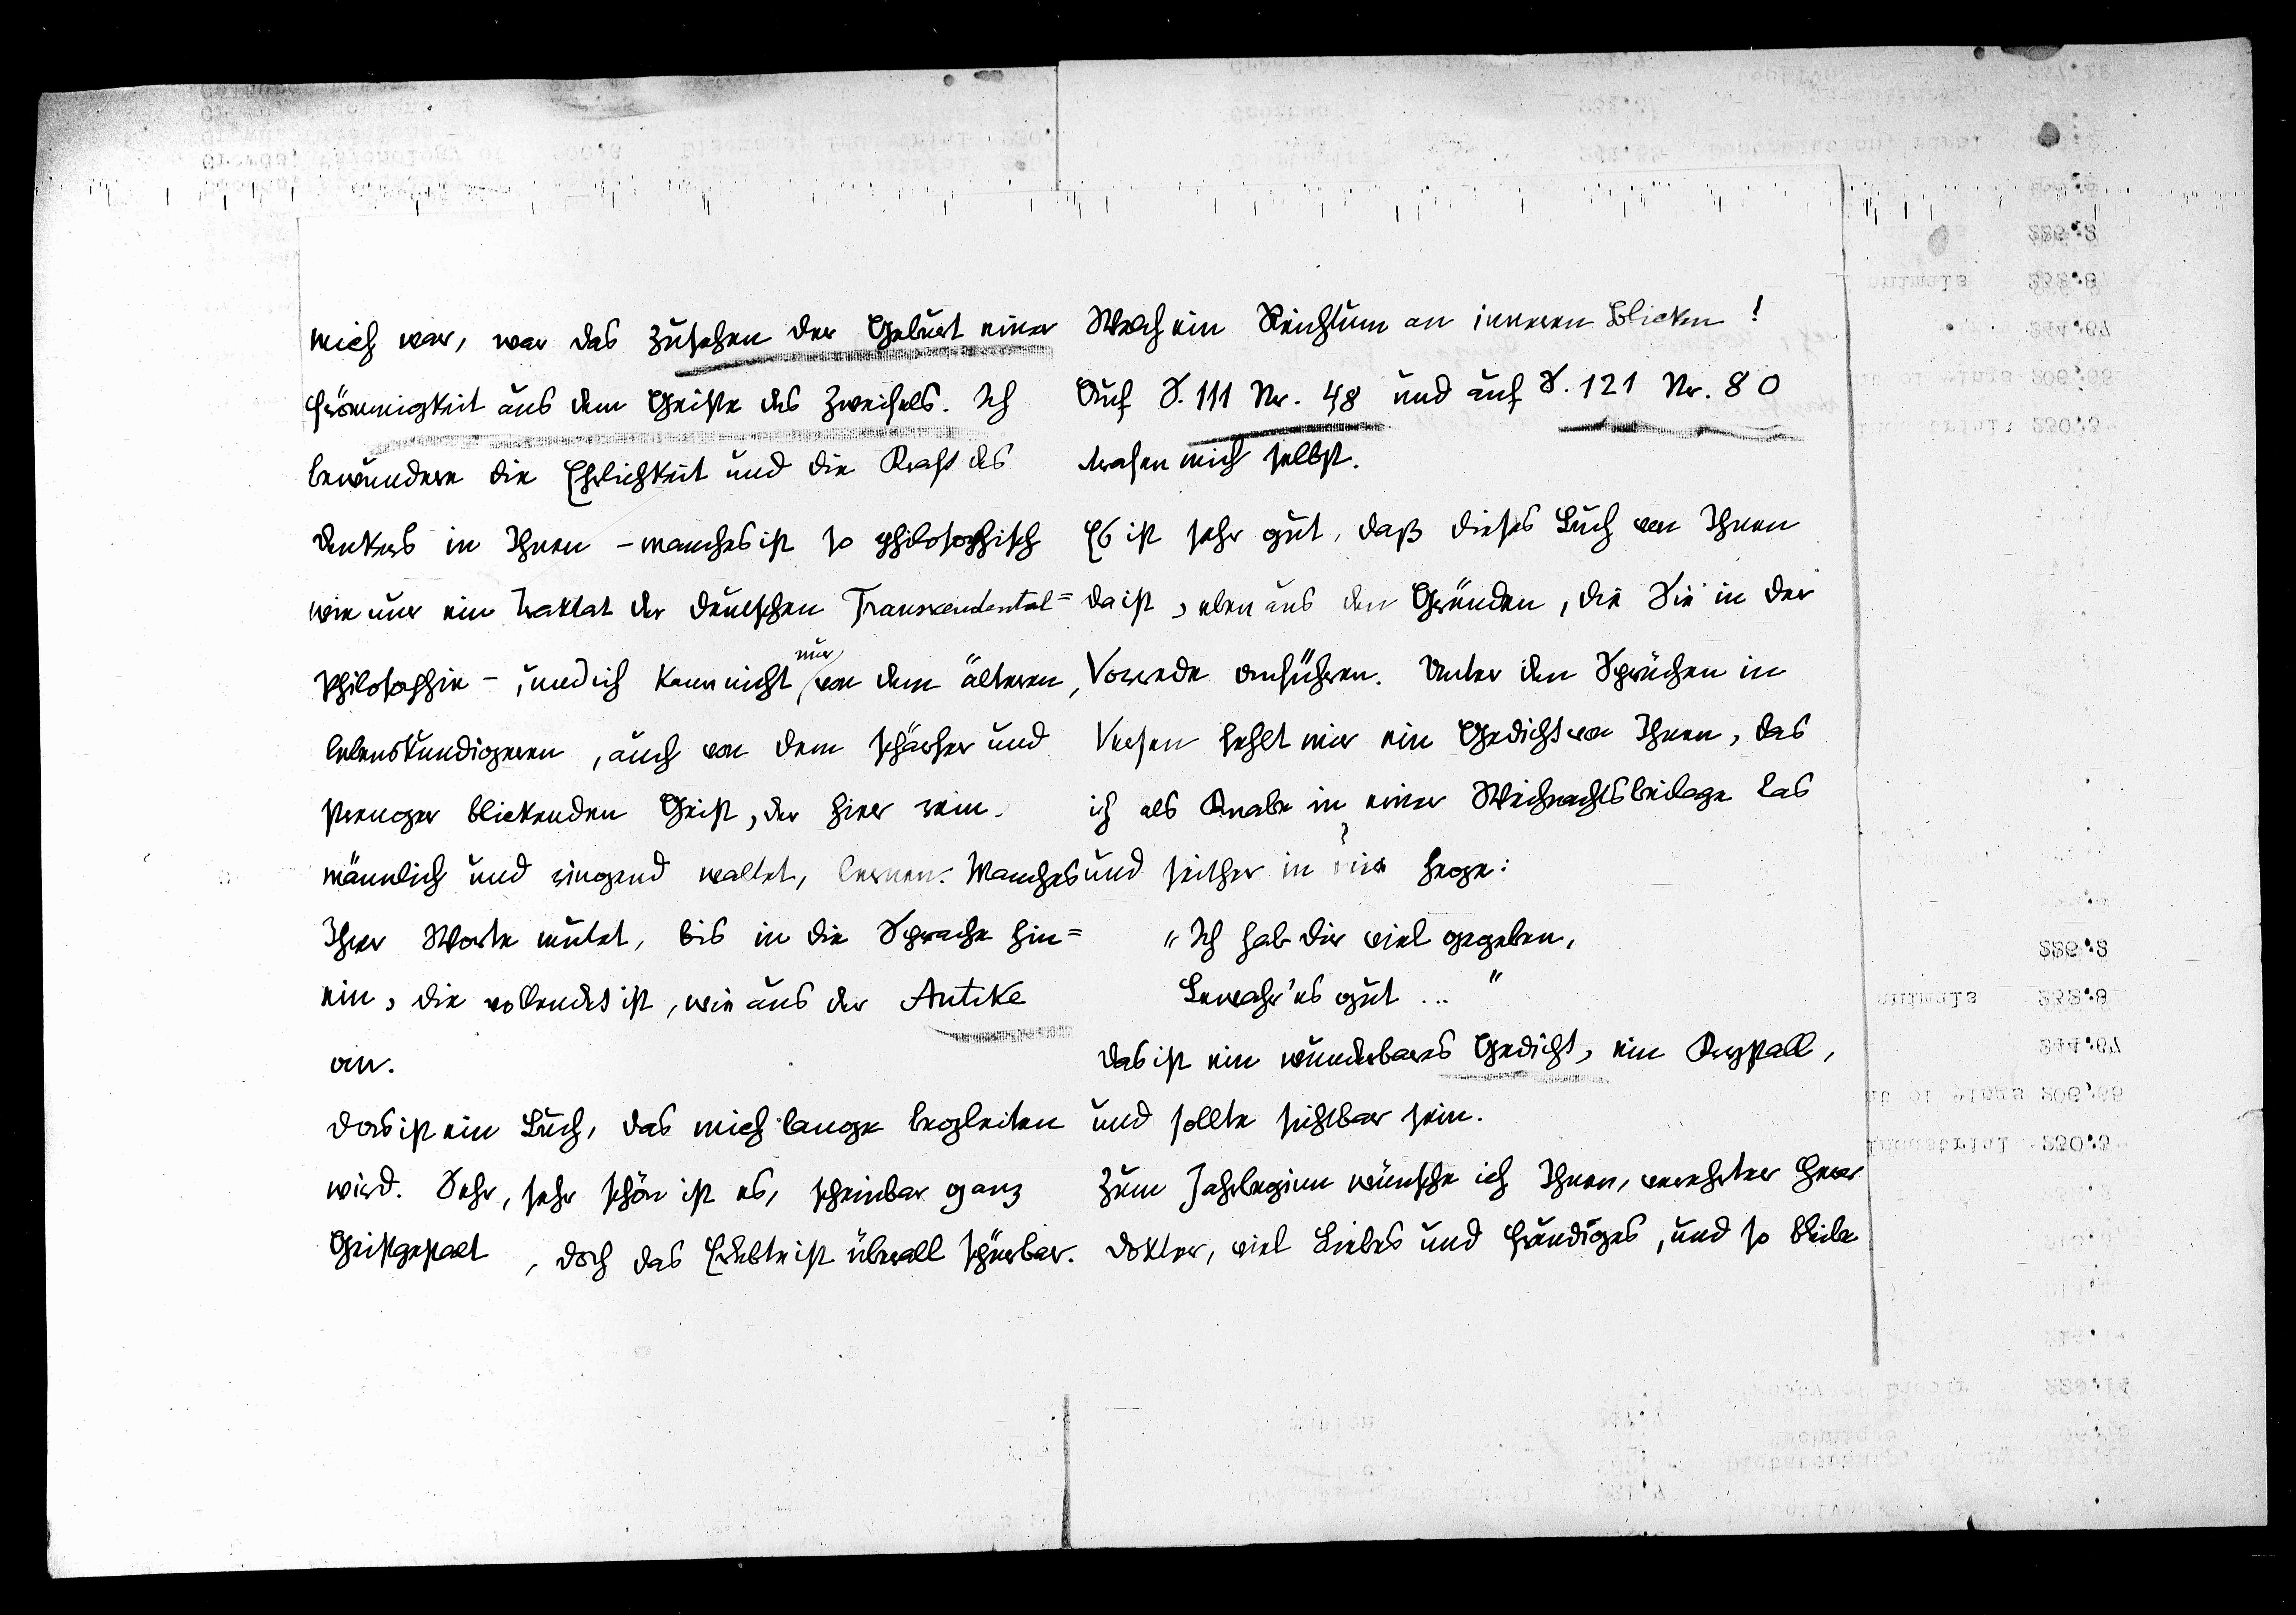 mich war, war das Zusehen der Geburt einer
Frömmigkeit aus dem Geiste des Zweifels. Ich
bewundere die Ehrlichkeit und die Kraft des
Denkers in Ihnen – manches ist so philosophisch
wie nur ein Traktat der deutschen Transzendental=
Philosophie –, und ich kann nicht nur von dem älteren,
lebenskundigeren, auch von dem schärfer und
strenger blickenden Geist, der hier rein
männlich und ringend waltet, lernen. Manches
Ihrer Worte mutet, bis in die Sprache hin=
ein, die vollendet ist, wie aus der Antike
an.
Das ist ein Buch, das mich lange begleiten
wird. Sehr, sehr schön ist es, scheinbar ganz
Geistgestalt, doch das Erlebte ist überall spürbar.
Welch ein Reichtum an inneren Blicken!
Auf S. 111 Nr. 48 und auf S. 121 Nr. 80
trafen mich selbst.
Es ist sehr gut, daß dieses Buch von Ihnen
da ist, eben aus den Gründen, die Sie in der
Vorrede anführen. Unter den Sprüchen in
Versen fehlt mir ein Gedicht von Ihnen, das
ich als Knabe in einer Weihnachtsbeilage las
und seither in mir hege:
"Ich hab dir viel gegeben,
Bewahr' es gut ... "
Das ist ein wunderbares Gedicht, ein Krystall,
und sollte sichtbar sein.
Zum Jahrbeginn wünsche ich Ihnen, verehrter Herr
Doktor, viel Liebes und Freudiges, und so bleibe